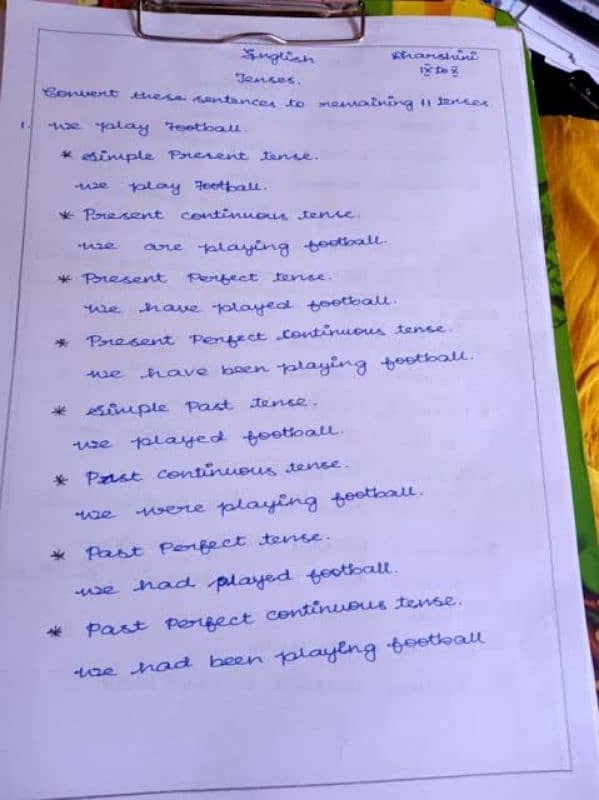 English
Dharshini
Tenses.
IX to X
Convert these sentences to remaining 11 tenses.
1. we play Football.
* Simple Present tense.
we play Football.
* Present continuous tense.
we are playing football.
* Present Perfect tense.
we have played football.
* Present Perfect Continuous tense.
we have been playing football.
* Simple Past tense.
we played football.
* Past continuous tense.
we were playing football.
* Past Perfect tense.
we had played football.
* Past Perfect continuous tense.
we had been playing football